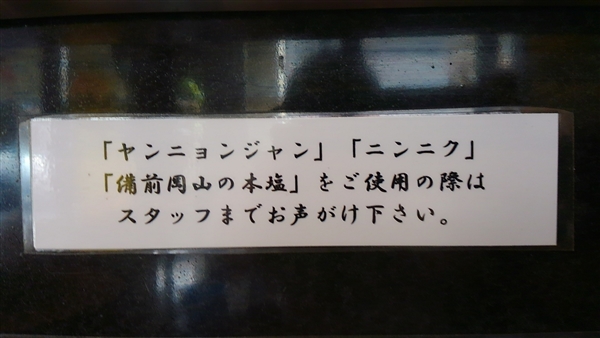 「ヤンニョンジャン」「ニンニク」
「備前岡山の本塩」をご使用の際は
スタッフまでお声がけ下さい。